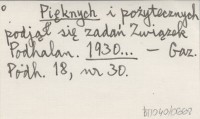 Pięknych i pożytecznych
podjął się zadań Związek
Podhalan. 1930... — Gaz.
Podh. 18, nr 30.